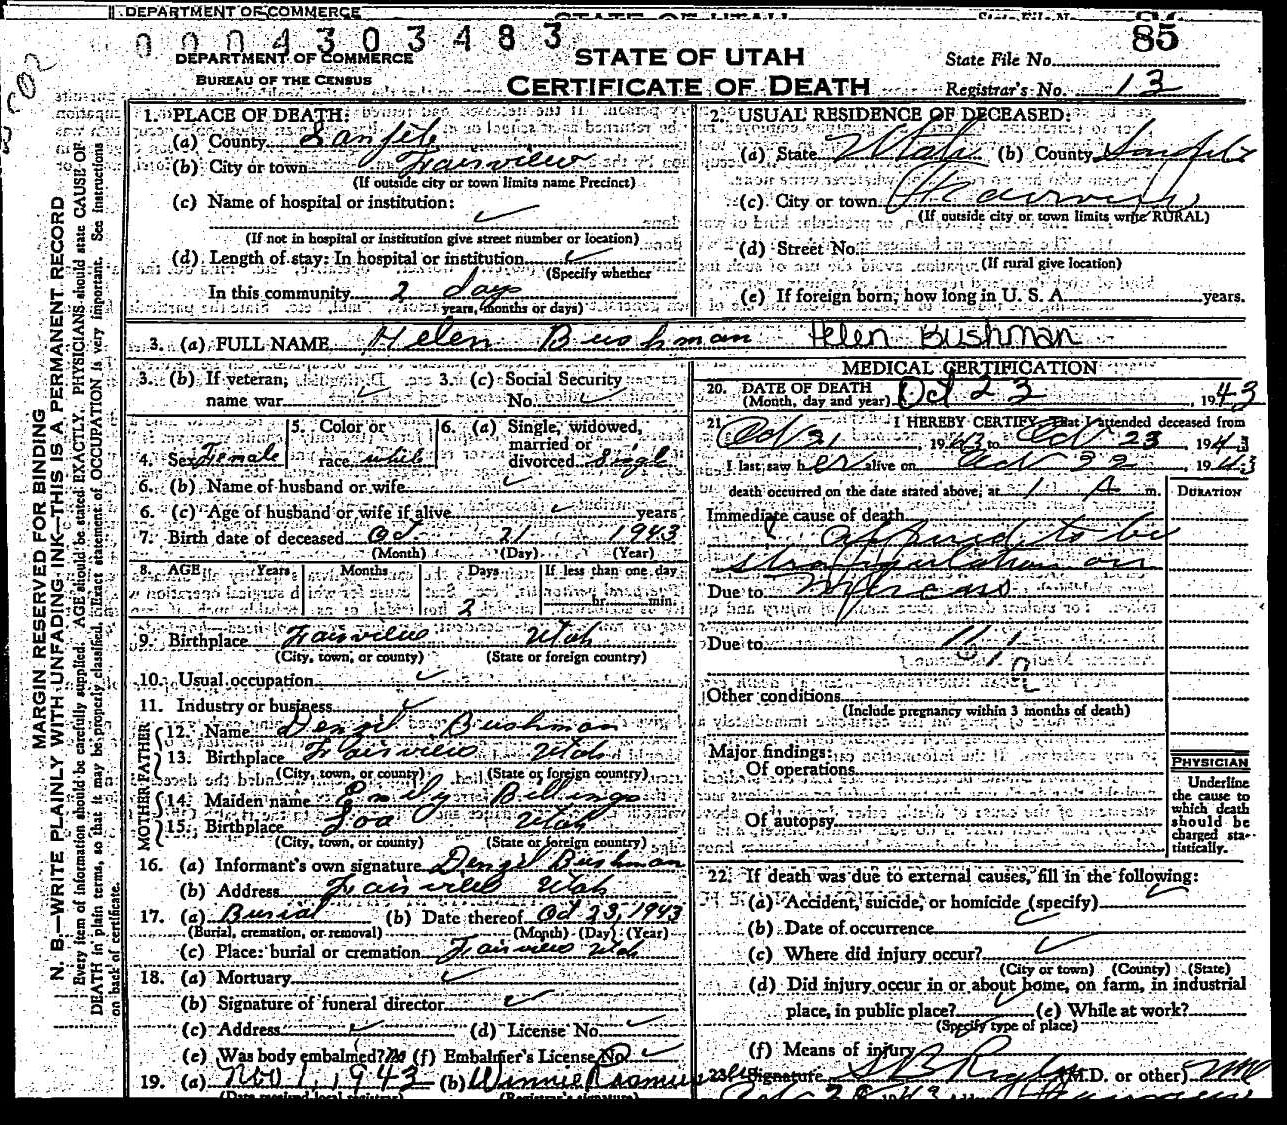 DEPARTMENT OF COMMERCE
STATE OF UTAH
0004303483
85
DEPARTMENT OF COMMERCE
BUREAU OF THE CENSUS
STATE OF UTAH
CERTIFICATE OF DEATH
State File No.
Registrar's No. 13
MARGIN RESERVED FOR BINDING
N. B.—WRITE PLAINLY WITH UNFADING INK—THIS IS A PERMANENT RECORD
Every item of information should be carefully supplied. AGE should be stated EXACTLY. PHYSICIANS should state CAUSE OF
DEATH in plain terms, so that it may be properly classified. Exact statement of OCCUPATION is very important. See Instructions
on back of certificate.
1. PLACE OF DEATH:
(a) County Sanpete
(b) City or town Fairview
(If outside city or town limits name Precinct)
(c) Name of hospital or institution: ✓
(If not in hospital or institution give street number or location)
(d) Length of stay: In hospital or institution ✓
(Specify whether
In this community 2 days
years, months or days)
2. USUAL RESIDENCE OF DECEASED:
(a) State Utah (b) County Sanpete
(c) City or town Fairview
(If outside city or town limits write RURAL)
(d) Street No.
(If rural give location)
(e) If foreign born, how long in U. S. A. years.
3. (a) FULL NAME Helen Bushman Helen Bushman
3. (b) If veteran, name war ✓ 3. (c) Social Security No. ✓
4. Sex Female 5. Color or race white 6. (a) Single, widowed, married or divorced Singl
6. (b) Name of husband or wife ✓
6. (c) Age of husband or wife if alive ✓ years
7. Birth date of deceased Oct 21 1943
(Month) (Day) (Year)
8. AGE Years Months Days If less than one day
2 hr. min.
9. Birthplace Fairview Utah
(City, town, or county) (State or foreign country)
10. Usual occupation ✓
11. Industry or business ✓
FATHER
12. Name Denzil Bushman
13. Birthplace Fairview Utah
(City, town, or county) (State or foreign country)
MOTHER
14. Maiden name Emily Billings
15. Birthplace Loa Utah
(City, town, or county) (State or foreign country)
16. (a) Informant's own signature Denzil Bushman
(b) Address Fairview Utah
17. (a) Burial (b) Date thereof Oct 23, 1943
(Burial, cremation, or removal) (Month) (Day) (Year)
(c) Place: burial or cremation Fairview Utah
18. (a) Mortuary ✓
(b) Signature of funeral director ✓
(c) Address ✓ (d) License No. ✓
(e) Was body embalmed? No (f) Embalmer's License No. ✓
19. (a) Nov 1, 1943 (b) Winnie Rasmussen
(Date received local registrar) (Registrar's signature)
MEDICAL CERTIFICATION
20. DATE OF DEATH
(Month, day and year) Oct 23, 1943
21. I HEREBY CERTIFY, That I attended deceased from
Oct 21 1943 to Oct 23 1943
I last saw her alive on Oct 22, 1943
death occurred on the date stated above, at 1 A m.
DURATION
Immediate cause of death
appeared to be
strangulation on
Due to mucous
Due to 161a
Other conditions
(Include pregnancy within 3 months of death)
Major findings:
Of operations
Of autopsy
PHYSICIAN
Underline
the cause to
which death
should be
charged sta-
tistically.
22. If death was due to external causes, fill in the following:
(a) Accident, suicide, or homicide (specify) ✓
(b) Date of occurrence ✓
(c) Where did injury occur? ✓
(City or town) (County) (State)
(d) Did injury occur in or about home, on farm, in industrial
place, in public place? ✓ (e) While at work?
(Specify type of place)
(f) Means of injury
23. Signature (M.D. or other)